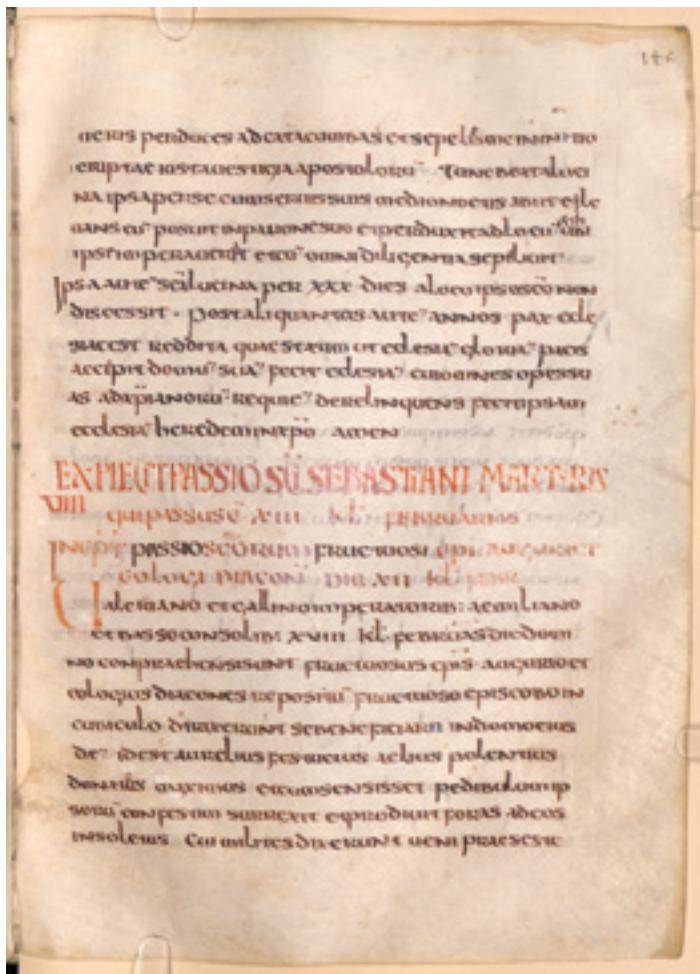 ueris perduces ad catacumbas et sepelies me in initio
criptae iuxta uestigia apostoloru Tunc beata luci
na ipsa per se cum seruis suis medio noctis abiit et le
uans eu posuit in pauone suo et perduxit ad locu
ipse imperauerat et cu omni diligentia sepeliuit
Ipsa aute sca lucina per xxx dies a loco ipso sco non
discessit . Post aliquantos aute annos pax ecle
siae est reddita quae statim ut eclesia gloria pacis
accipit domu sua fecit eclesia
as ad xpianoru requie derelinquens fecit ipsam
ecclesia heredem in xpo amen
EXPLICIT PASSIO SCI SEBASTIANI MARTYRIS
VIIII
qui passus e XIII kl FEBRUARIAS
INCIPT PASSIO SCORUM FRUCTUOSI EPI AUGURI ET
EOLOGI DIACON DIE XII kl FEBR
Ualeriano et gallino imperatorib: aemiliano
et basso consolib: XVIII kl febrias die domi
no conpraehensi sunt fructuosus epis augurio et
eologius diacones reposito fructuoso episcobo in
cubiculo direxerunt se beneficiarii in domo eius
de idest aurelius festucius aelius polentius
donatus maximus et cu sensisset pedibulum ip
soru confestim surrexit et prodiuit foras ad eos
in soleius Cui milites dixerunt ueni praeses te